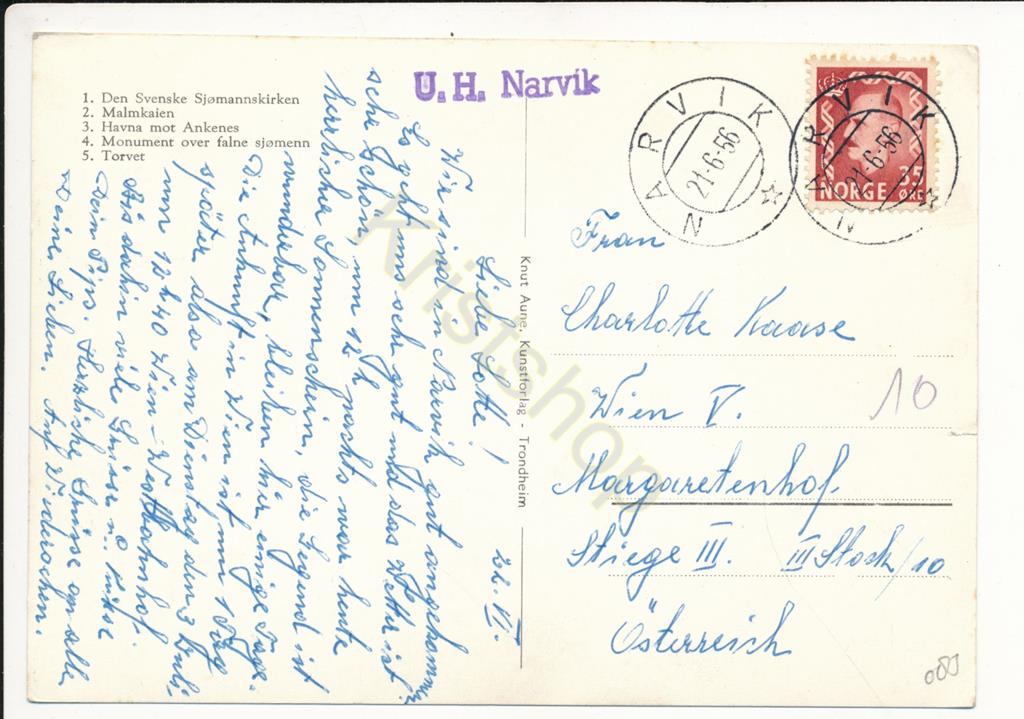 1. Den Svenske Sjømannskirken
2. Malmkaien
3. Havna mot Ankenes
4. Monument over falne sjømenn
5. Torvet
U.H. Narvik
NARVIK
21-6-56
NARVIK
21-6-56
NORGE 35
ØRE
Knut Aune, Kunstforlag - Trondheim
22. VI.
Liebe Lotte!
Wir sind in Narvik gut angekommen
Es geht uns sehr gut und das Wetter ist
sehr schön, um 12 h nachts war heute
herrlicher Sonnenschein, die Gegend ist
wunderbar, bleiben hier einige Tage.
Die Ankunft in Wien ist um 1 Tag
später also am Dienstag den 3 Juli
um 12 h 40 Wien - Westbahnhof.
Bis dahin viele Grüsse u. Küsse
Dein Pips. Herzliche Grüsse an alle
Deine Lieben. Auf Wiedersehen.
Frau
Charlotte Kaase
Wien V.
Margaretenhof.
Stiege III. III Stock/10
Österreich
10
Kristshop